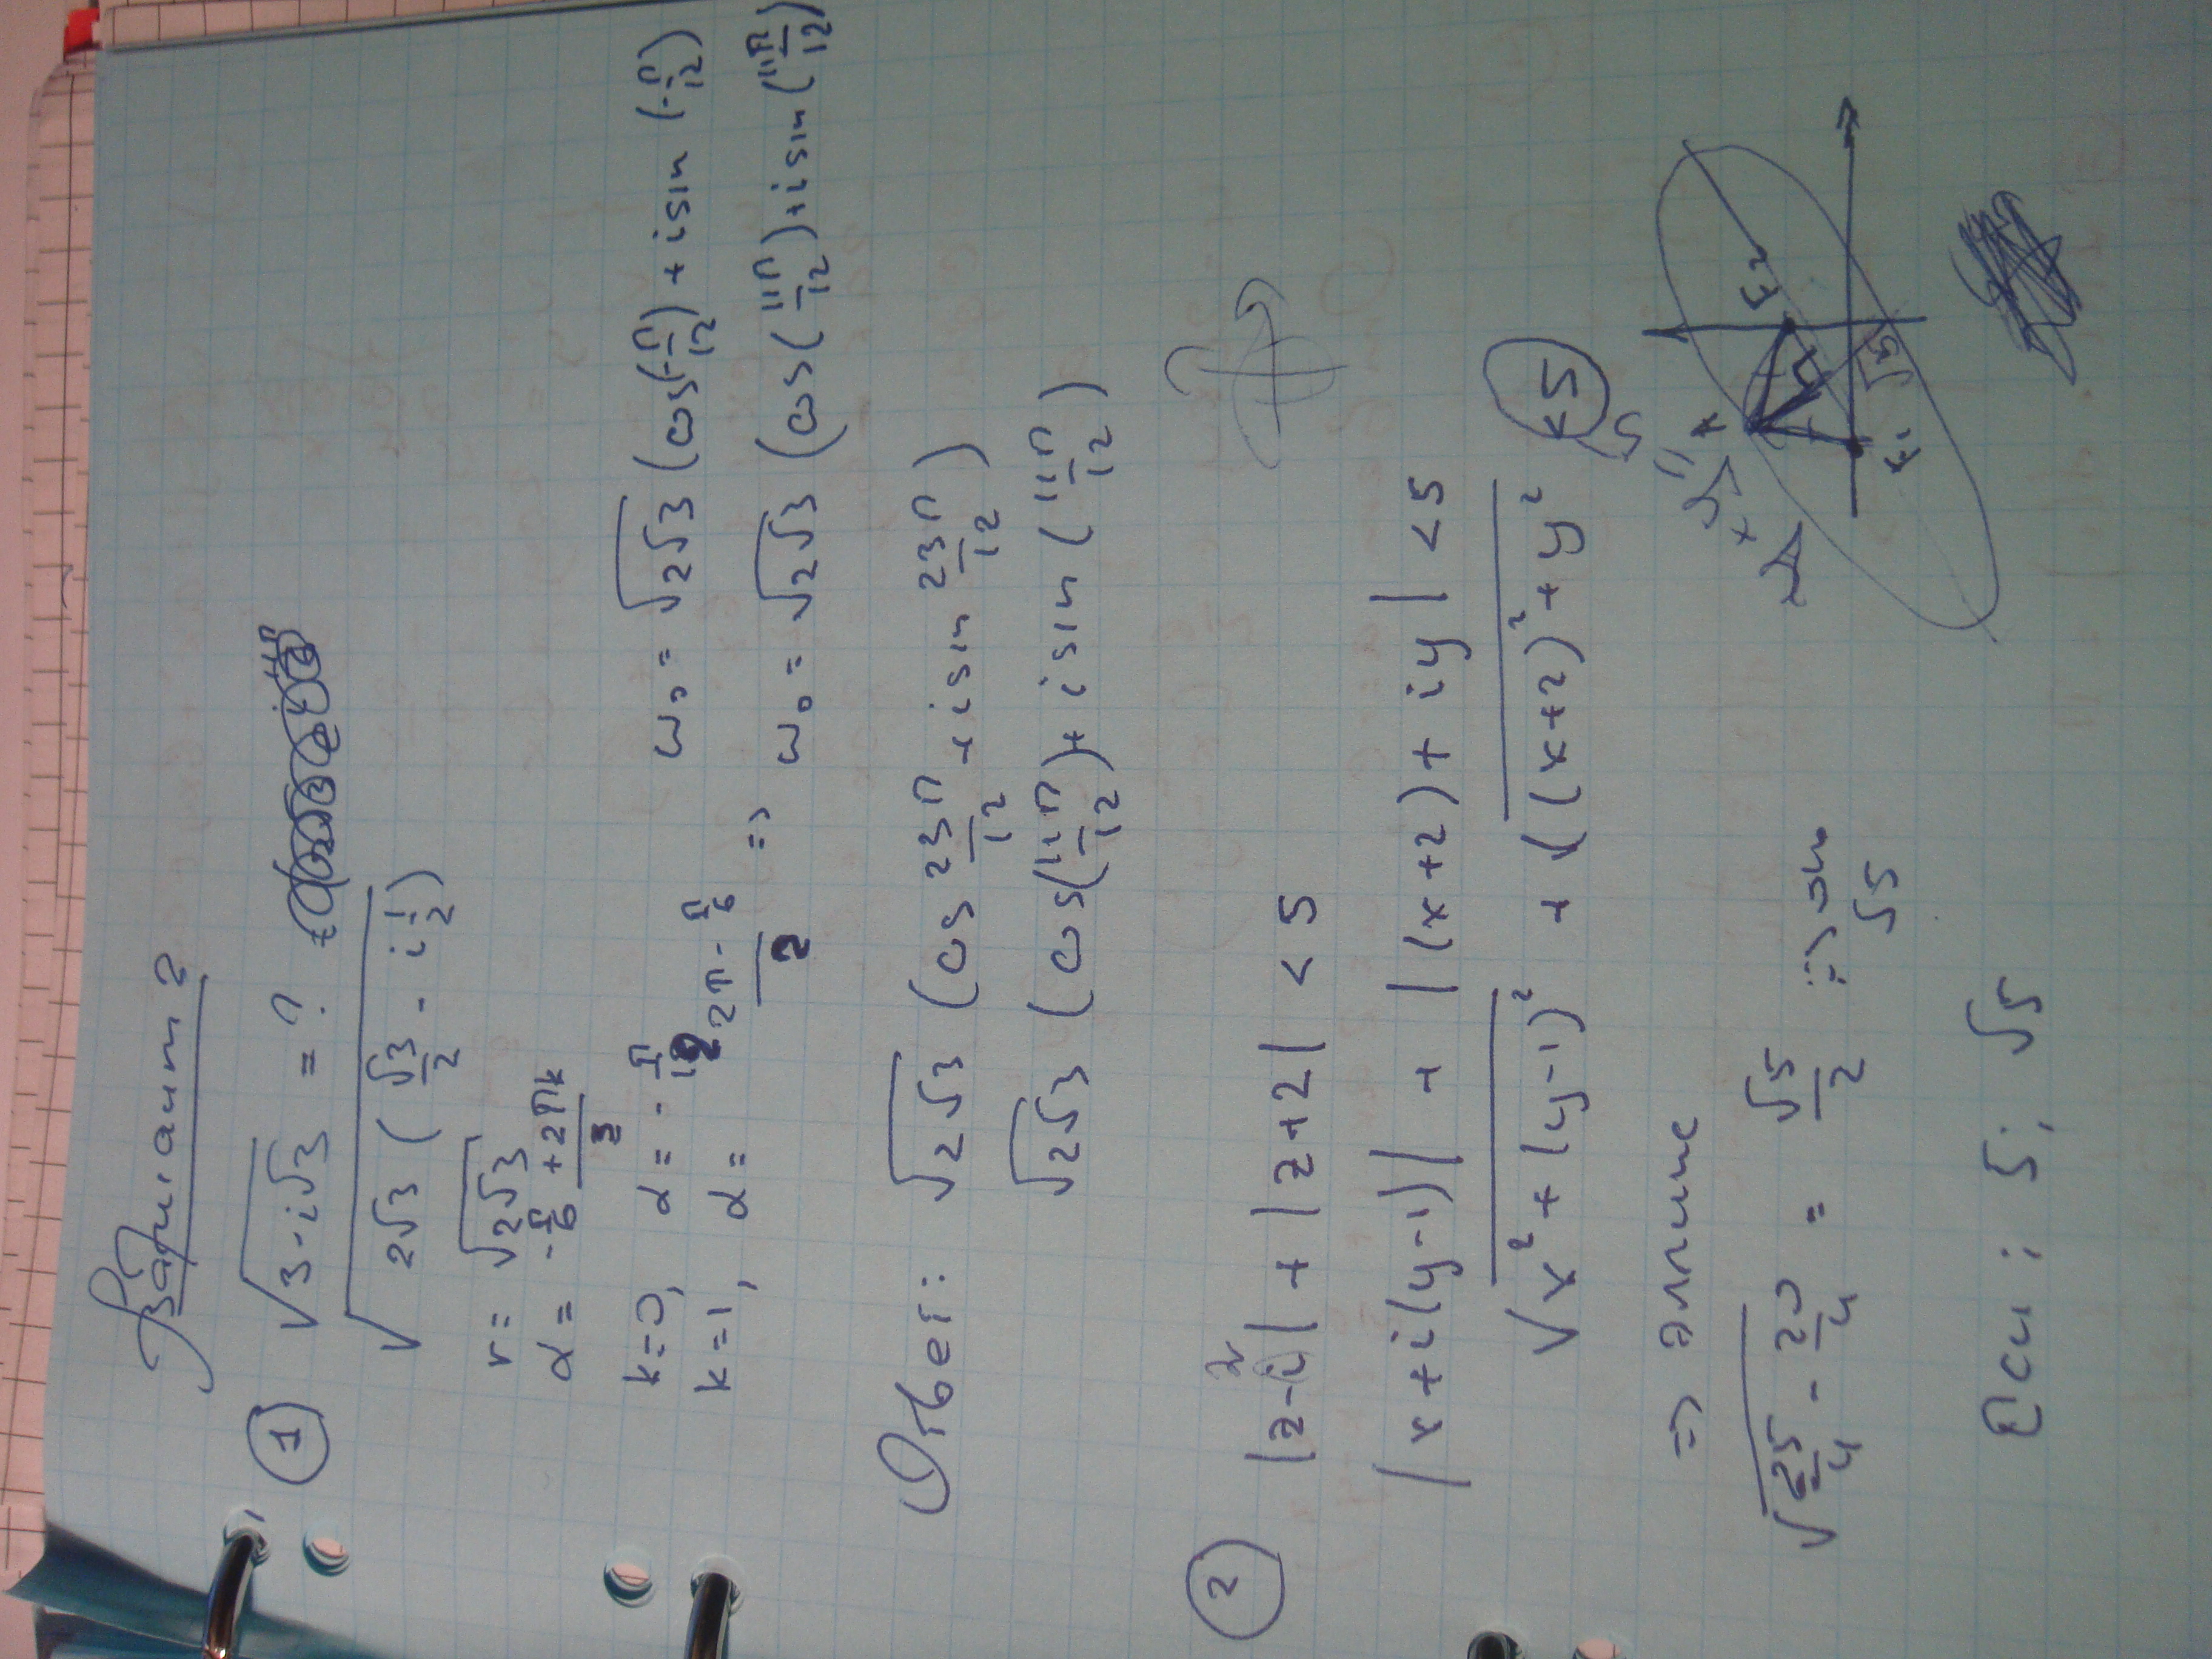 Вариант 2
① √(3-i√3) = ?
√(2√3 (√3/2 - i 1/2))
r = √(2√3)
α = (-π/6 + 2πk)/2
k=0, α = -π/12
ω₀ = √(2√3) (cos(-π/12) + i sin (-π/12)
k=1, α = (2π - π/6)/2 => ω₀ = √(2√3) (cos(11π/12) + i sin(11π/12)
Ответ: √(2√3) (cos 23π/12 + i sin 23π/12)
√(2√3) (cos(11π/12) + i sin (11π/12)
② |z-i| + |z+2| < 5
|x+i(y-1)| + |(x+2) + iy| < 5
√(x²+(y-1)²) + √((x+2)²+y²) < 5
=> эллипс
√(25/4 - 20/4) = √5/2 => √5
Оси: 5; √5
F₂
F₁
√5